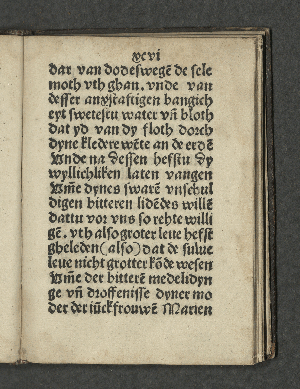 xcvi
dar van dodeswegē de sele
moth vth ghan. vnde van
desser anxstaftigen bangich
eyt swetestu water vn̄ bloth
dat yd van dy floth dorch
dyne kledere wēte an de erdē
Unde na dessen hefstu dy
wyllichliken laten vangen
Um̄e dynes swarē vnschul
digen bitteren lidēdes willē
dattu vor vns so rehte willi
gē. vth alsogroter leue hefst
gheleden (also) dat de sulue
leue nicht grotter kōde wesen
Um̄e der bitterē medelidyn
ge vn̄ droffenisse dyner mo
der der iūckfrouwē Marien